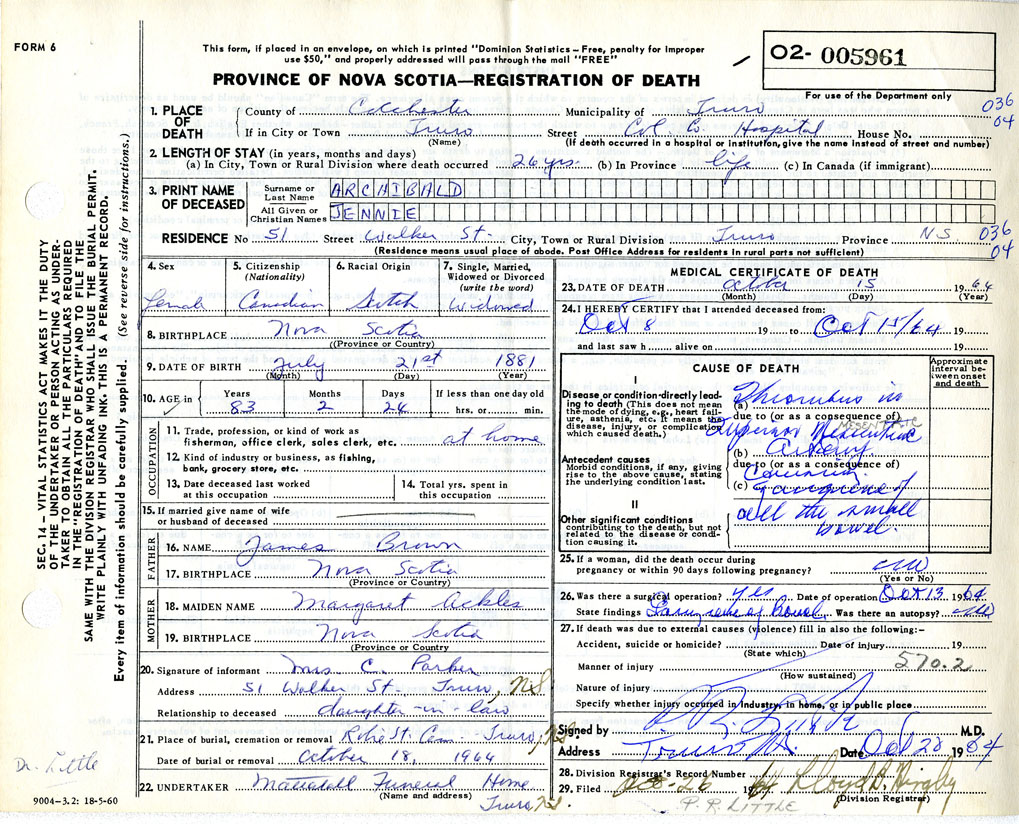 FORM 6
This form, if placed in an envelope, on which is printed "Dominion Statistics – Free, penalty for improper
use $50," and properly addressed will pass through the mail "FREE"
PROVINCE OF NOVA SCOTIA—REGISTRATION OF DEATH
O2- 005961
For use of the Department only
1. PLACE OF DEATH
County of Colchester Municipality of Truro 036
If in City or Town Truro Street Col. Co. Hospital House No. 04
(Name) (If death occurred in a hospital or institution, give the name instead of street and number)
2. LENGTH OF STAY (in years, months and days)
(a) In City, Town or Rural Division where death occurred 26 yrs. (b) In Province life (c) In Canada (if immigrant)
3. PRINT NAME OF DECEASED
Surname or Last Name ARCHIBALD
All Given or Christian Names JENNIE
RESIDENCE No 51 Street Walker St. City, Town or Rural Division Truro Province NS 036
(Residence means usual place of abode. Post Office Address for residents in rural parts not sufficient) 04
4. Sex female
5. Citizenship (Nationality) Canadian
6. Racial Origin Scotch
7. Single, Married, Widowed or Divorced (write the word) Widowed
8. BIRTHPLACE Nova Scotia
(Province or Country)
9. DATE OF BIRTH July 21st 1881
(Month) (Day) (Year)
10. AGE in Years 83 Months 2 Days 24 If less than one day old hrs. or min.
OCCUPATION
11. Trade, profession, or kind of work as
fisherman, office clerk, sales clerk, etc. at home
12. Kind of industry or business, as fishing,
bank, grocery store, etc.
13. Date deceased last worked
at this occupation
14. Total yrs. spent in
this occupation
15. If married give name of wife
or husband of deceased
FATHER
16. NAME James Brown
17. BIRTHPLACE Nova Scotia
(Province or Country)
MOTHER
18. MAIDEN NAME Margaret Ackles
19. BIRTHPLACE Nova Scotia
(Province or Country
20. Signature of informant Mrs C. Parker
Address 51 Walker St. Truro, NS
Relationship to deceased daughter-in-law
21. Place of burial, cremation or removal Robie St. Cem. Truro, NS.
Date of burial or removal October 18, 1964
22. UNDERTAKER Mattatall Funeral Home
(Name and address) Truro, NS.
MEDICAL CERTIFICATE OF DEATH
23. DATE OF DEATH 15 1964
(Month) (Day)
24. I HEREBY CERTIFY that I attended deceased from:
Oct 8 19 to Oct 15/64 19
and last saw h alive on 19
CAUSE OF DEATH
Approximate interval between onset and death
I
Disease or condition directly leading to death (This does not mean the mode of dying, e.g., heart failure, asthenia, etc. It means the disease, injury, or complication which caused death.)
(a) Thrombus in
due to (or as a consequence of)
MESENTERIC
Superior Mesenteric
(b) artery
Antecedent causes
Morbid conditions, if any, giving rise to the above cause, stating the underlying condition last.
due to (or as a consequence of)
Causing
(c) Gangrene of
II
Other significant conditions
contributing to the death, but not related to the disease or condition causing it.
all the small
bowel.
25. If a woman, did the death occur during
pregnancy or within 90 days following pregnancy? no
(Yes or No)
26. Was there a surgical operation? yes Date of operation Oct 13 1964
State findings Gangrene of bowel Was there an autopsy? no
27. If death was due to external causes (violence) fill in also the following:–
Accident, suicide or homicide? Date of injury 19
(State which)
Manner of injury 570.2
(How sustained)
Nature of injury
Specify whether injury occurred in industry, in home, or in public place
Signed by M.D.
Address Truro NS. Date Oct 20 1964
28. Division Registrar's Record Number
29. Filed Oct-26 19
P.R. LITTLE (Division Registrar)
Dr. Little
9004-3.2: 18-5-60
SEC. 14 – VITAL STATISTICS ACT MAKES IT THE DUTY
OF THE UNDERTAKER OR PERSON ACTING AS UNDER-
TAKER TO OBTAIN ALL THE PARTICULARS REQUIRED
IN THE "REGISTRATION OF DEATH" AND TO FILE THE
SAME WITH THE DIVISION REGISTRAR WHO SHALL ISSUE THE BURIAL PERMIT.
WRITE PLAINLY WITH UNFADING INK. THIS IS A PERMANENT RECORD.
Every item of information should be carefully supplied. (See reverse side for instructions.)